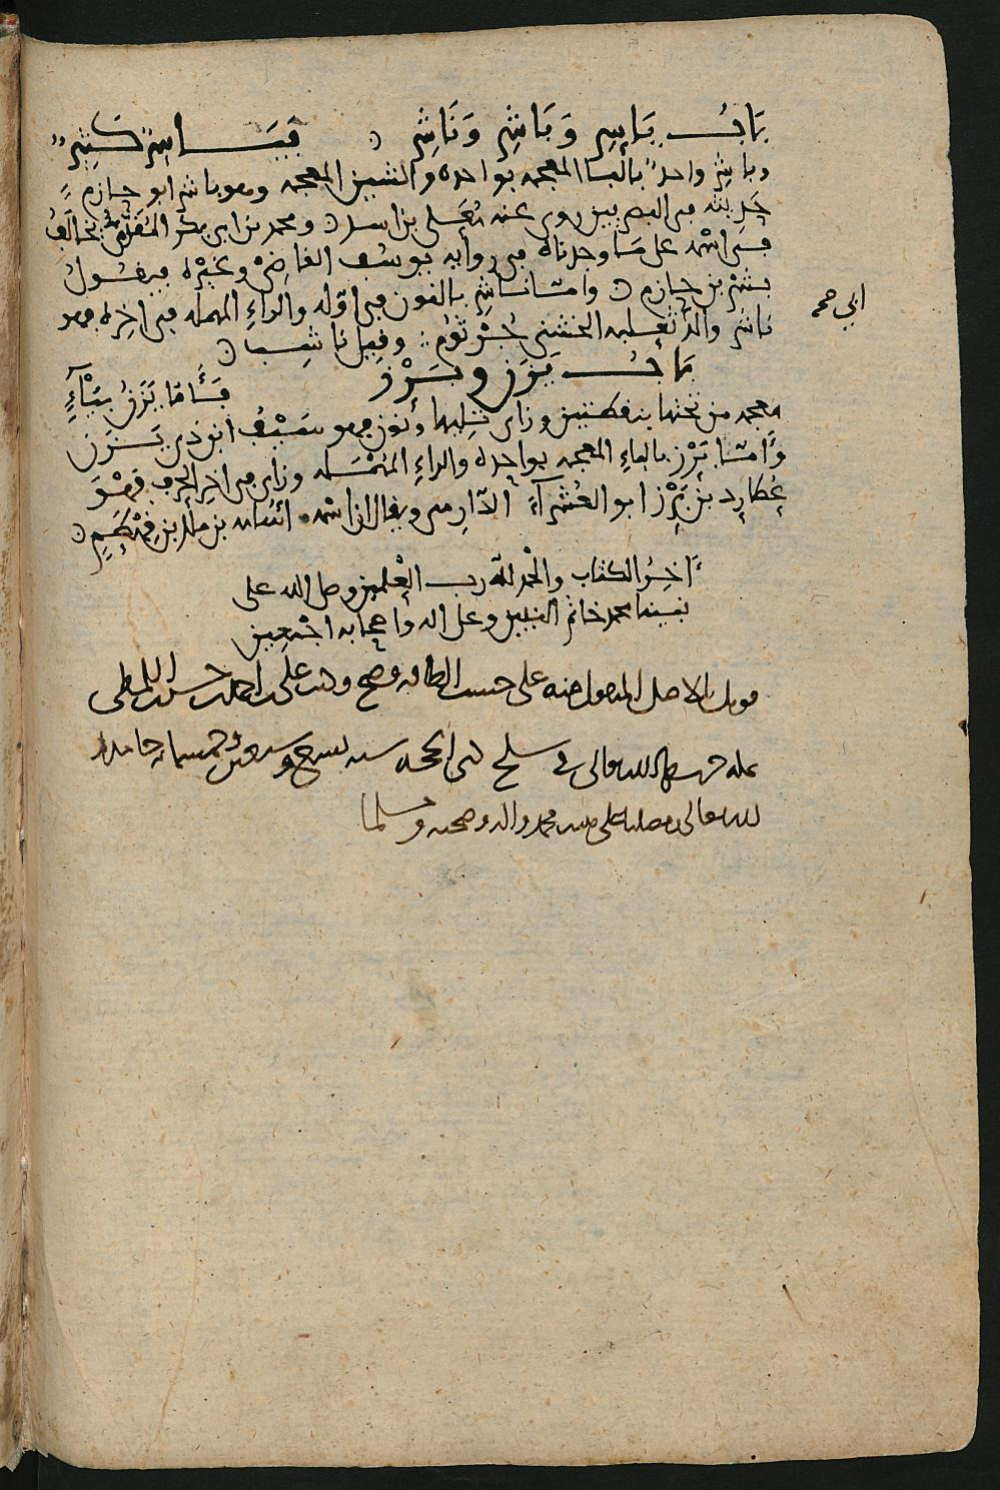 بَابُ يَاسِرٍ وَبَاشِرٍ وَنَاشِرٍ فَيَاسِرٌ كَثِيرٌ
وباشر واحدٌ بالباء المعجمة بواحدة والشين المعجمة وهو باشر ابو حازم
حديثه في البصريين روى عنه مُعَلى بن اسد ومحمد بن ابي بكر المُقَدَّمي يُخالَفُ
في اسمه على ما وجدناه في رواية يوسُف القاضِي وغيرُه فيقول
بشر بن حازم وامّا ناشر بالنون في اوّله والراءِ المهملة في اخِره فهو
ابي محمد
ناشر والد ثعلبة الخشني جُرْثوم وقيل ناشب
بَابُ يَزَن وبَرْز فَأمّا يَزَنُ بيَاءٍ
معجمة من تحتها بنقطتين وزاي تليها ونون فهو سَيْفُ ابن ذي يَزَن
وَامّا بَرْز بالباءِ المعجمة بواحدة والراءِ المهملة وزاي في اخِر الحرف فهْوَ
عُطارِد بن بَرْز ابو العُشَراءِ الدّارمي ويقال ان اسمه اسامة بن مالك بن قِهْطَم
آخِرُ الكتاب والحمد لله رب العلمين وصلى الله على
نبينا محمد خاتم النبيين وعلى اله واصحابه اجمعين
قوبل بالاصل المنقول منه على حسب الطاقة وصح وكتب علي بن احمد بن حسن
في سلخ ذي الحجة سنة تسع وخمسماية حامدا
لله تعالى ومصليا على محمد واله وصحبه ومسلما